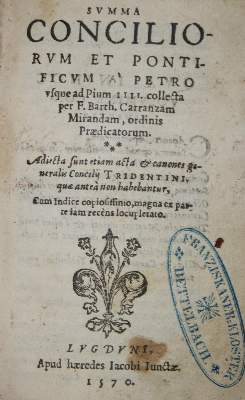 SVMMA
CONCILIO-
RVM ET PONTI-
FICVM A PETRO
vsque ad Pium IIII. collecta
per F. Barth. Carranzam
Mirandam, ordinis
Prædicatorum.
***
Adiecta sunt etiam acta & canones ge-
neralis Concilij TRIDENTINI,
quæ anteà non habebantur,
Cum Indice copiosissimo, magna ex par-
te iam recèns locupletato.
LVGDVNI,
Apud hæredes Iacobi Iunctæ.
1570.
FRANZISKANERKLOSTER
DETTELBACH